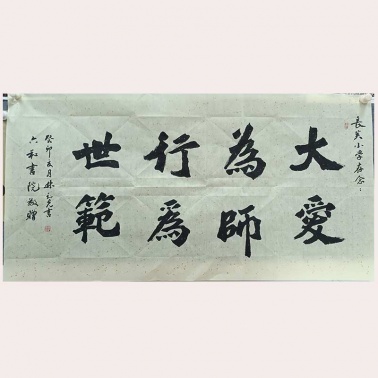 長美小學存念：
大愛
為師
行為
世範
癸卯友月林之光書
六和書院敬贈